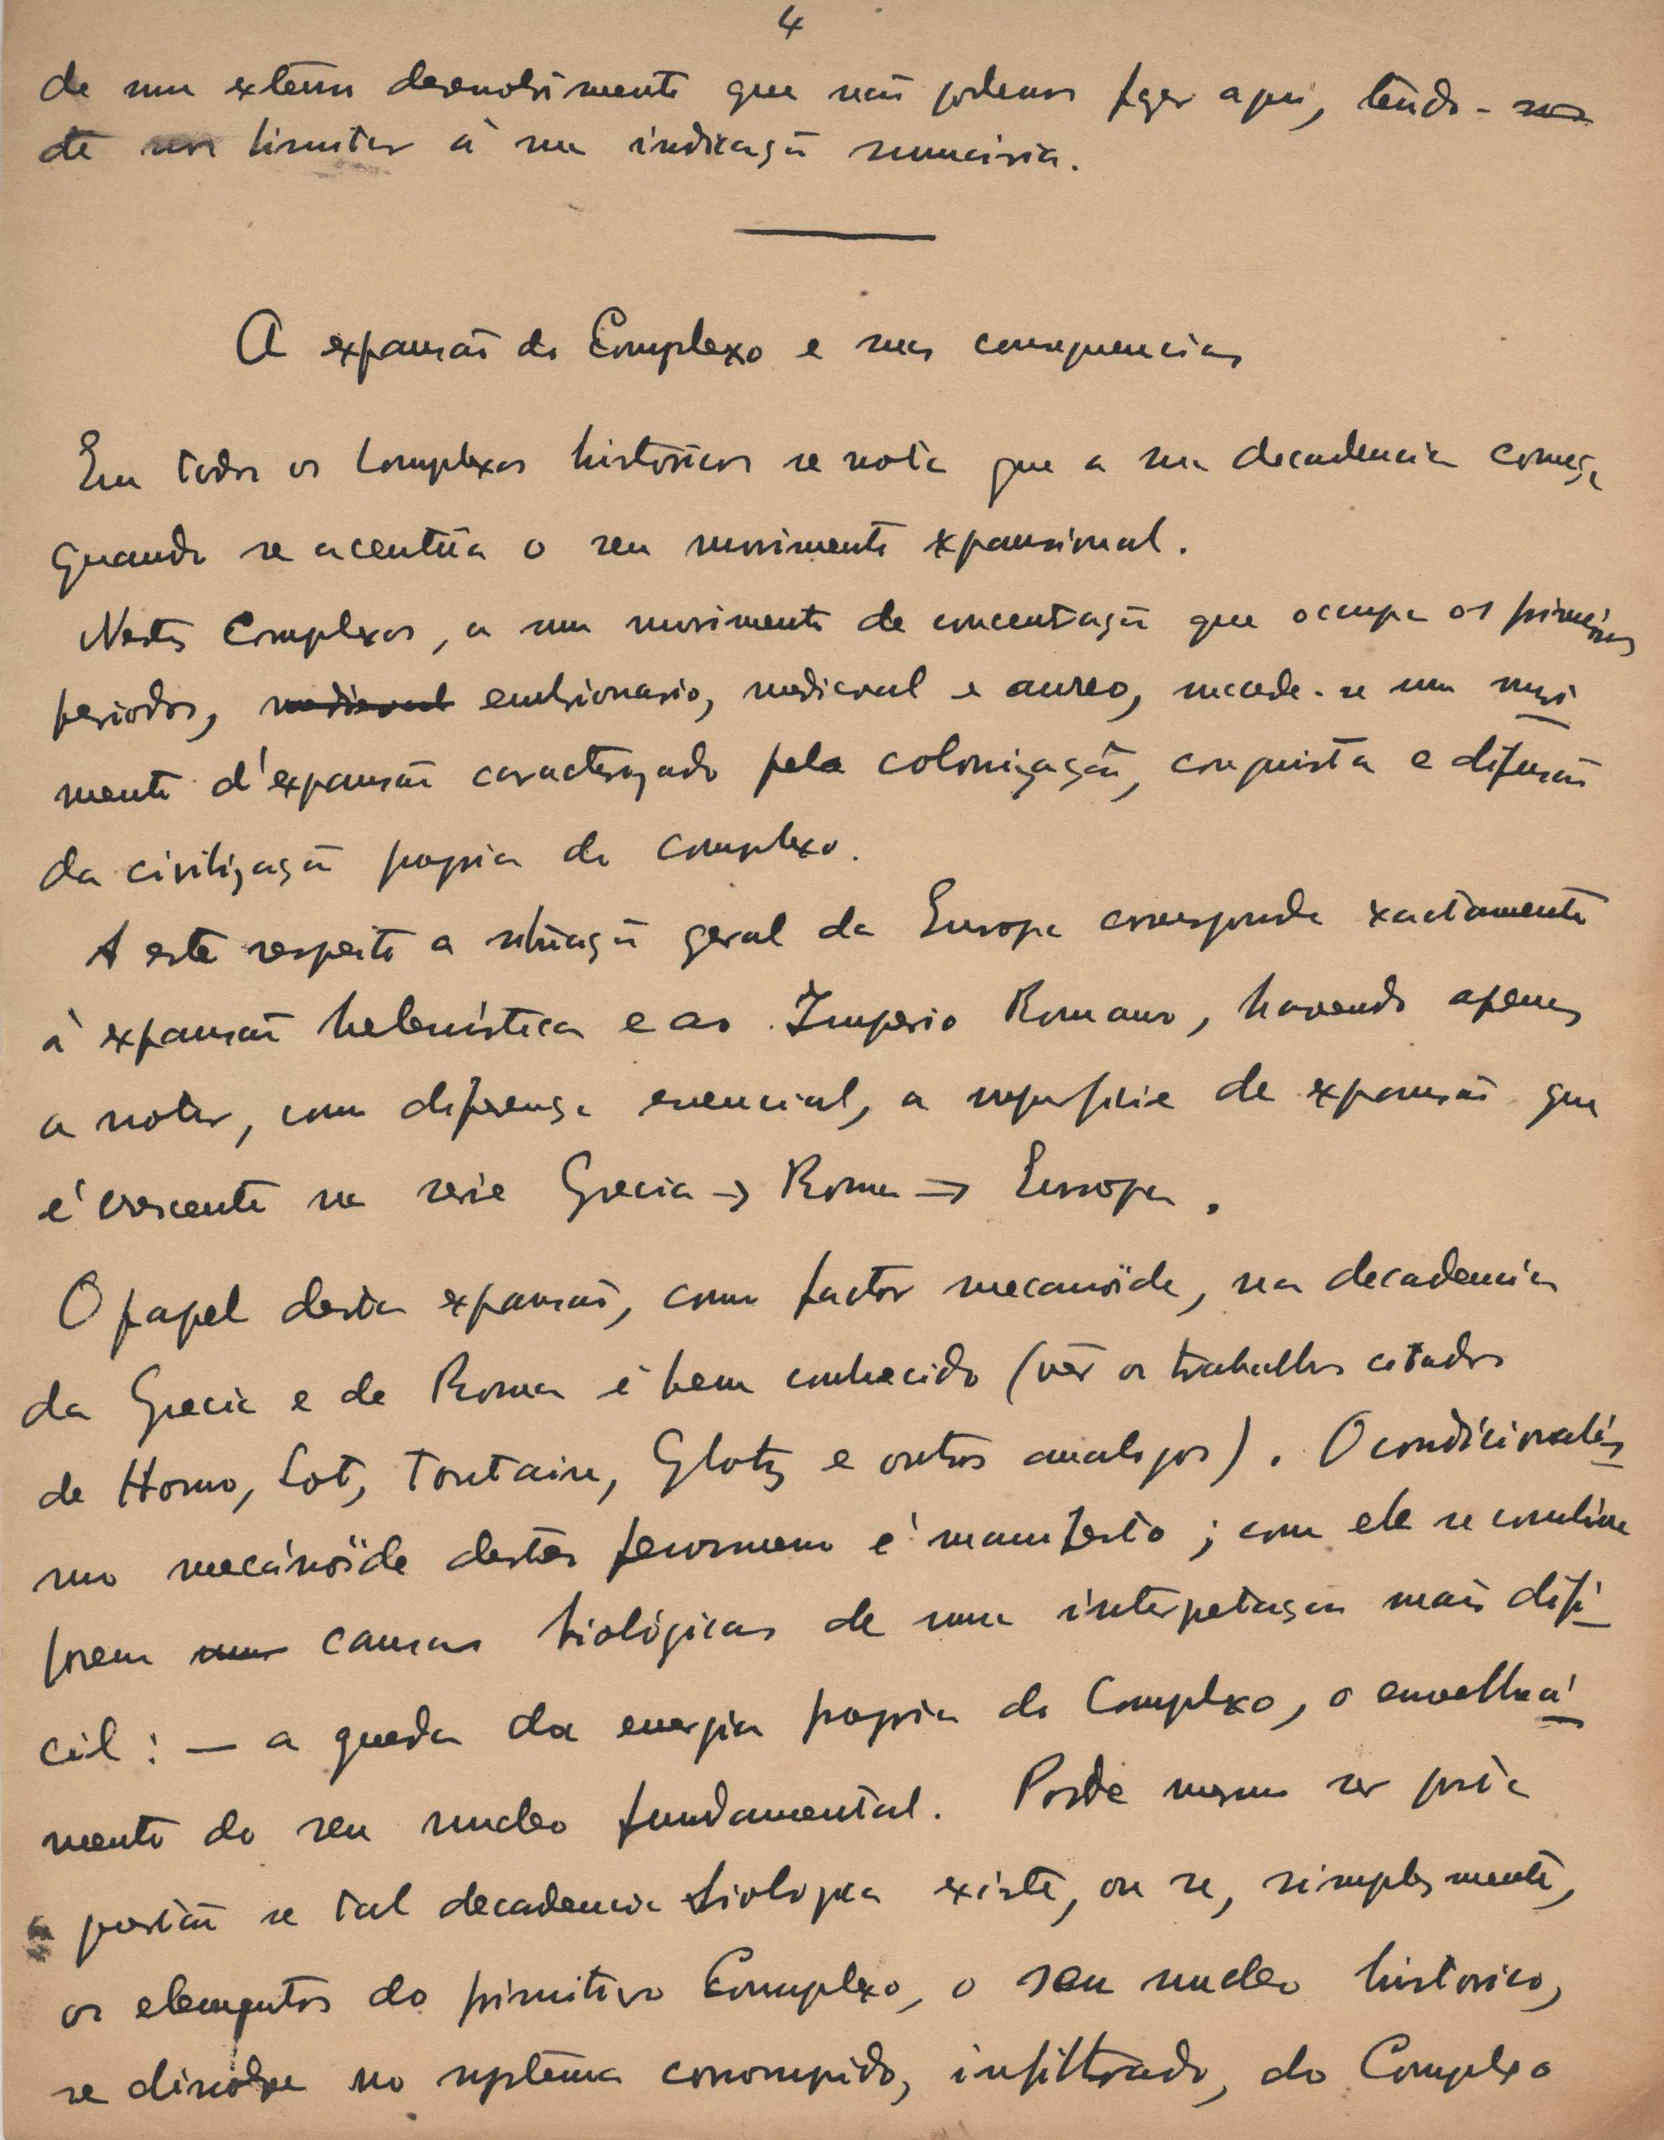 4
de um extenso desenvolvimento que não podemos fazer aqui, tendo-
de nos limitar á sua indicação sumaria.
A expansão do Complexo e suas consequencias
Em todos os Complexos históricos se nota que a sua decadencia começa
quando se acentúa o seu movimento expansional.
Nestes Complexos, a um movimento de concentração que ocupa os primeiros
periodos, medieval embrionario, medieval e aureo, sucede-se um movi
mento d'expansão caracterizado pela colonização, conquista e difusão
da civilização propria do complexo.
A este respeito a situação geral da Europa corresponde exactamente
á expansão helenística e ao Imperio Romano, havendo apenas
a notar, como diferença essencial, a superficie de expansão que
é crescente na serie Grecia → Roma → Europa.
O papel desta expansão, como factor mecanoïde, na decadencia
da Grecia e de Roma é bem conhecido (vêr os trabalhos citados
de Homo, Lot, Toutain, Glotz e outros analogos). O condicionalis
mo mecânoïde destes fenomeno é manifesto; com ele se combina
porem causas biológicas de uma interpretação mais difi
cil: — a queda da energia propria do Complexo, o envelheci
mento do seu nucleo fundamental. Pode mesmo ser posta
a questão se tal decadencia biologica existe, ou se, simplesmente,
os elementos do primitivo Complexo, o seu nucleo historico,
se dissolve no systema corrompido, infiltrado, do Complexo